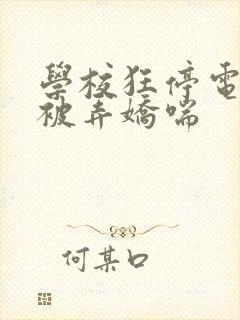 學校狂停電
被弄嬌喘
何某口